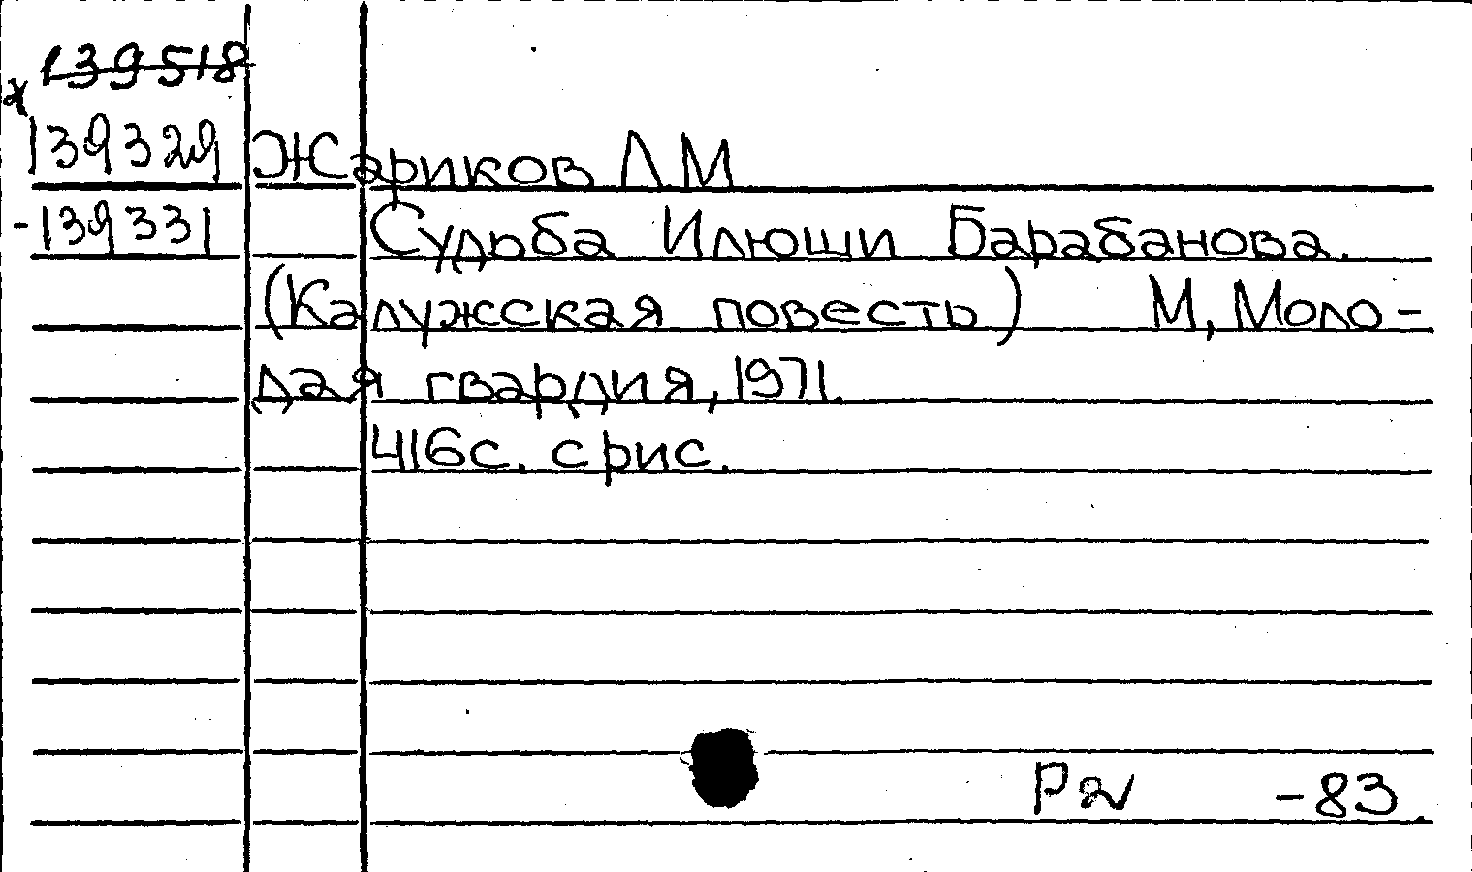 139518
х
139329 Жариков Л М
-139331 Судьба Илюши Барабанова.
(Калужская повесть) М, Моло-
дая гвардия, 1971.
416с. с рис.
Р2 -83.